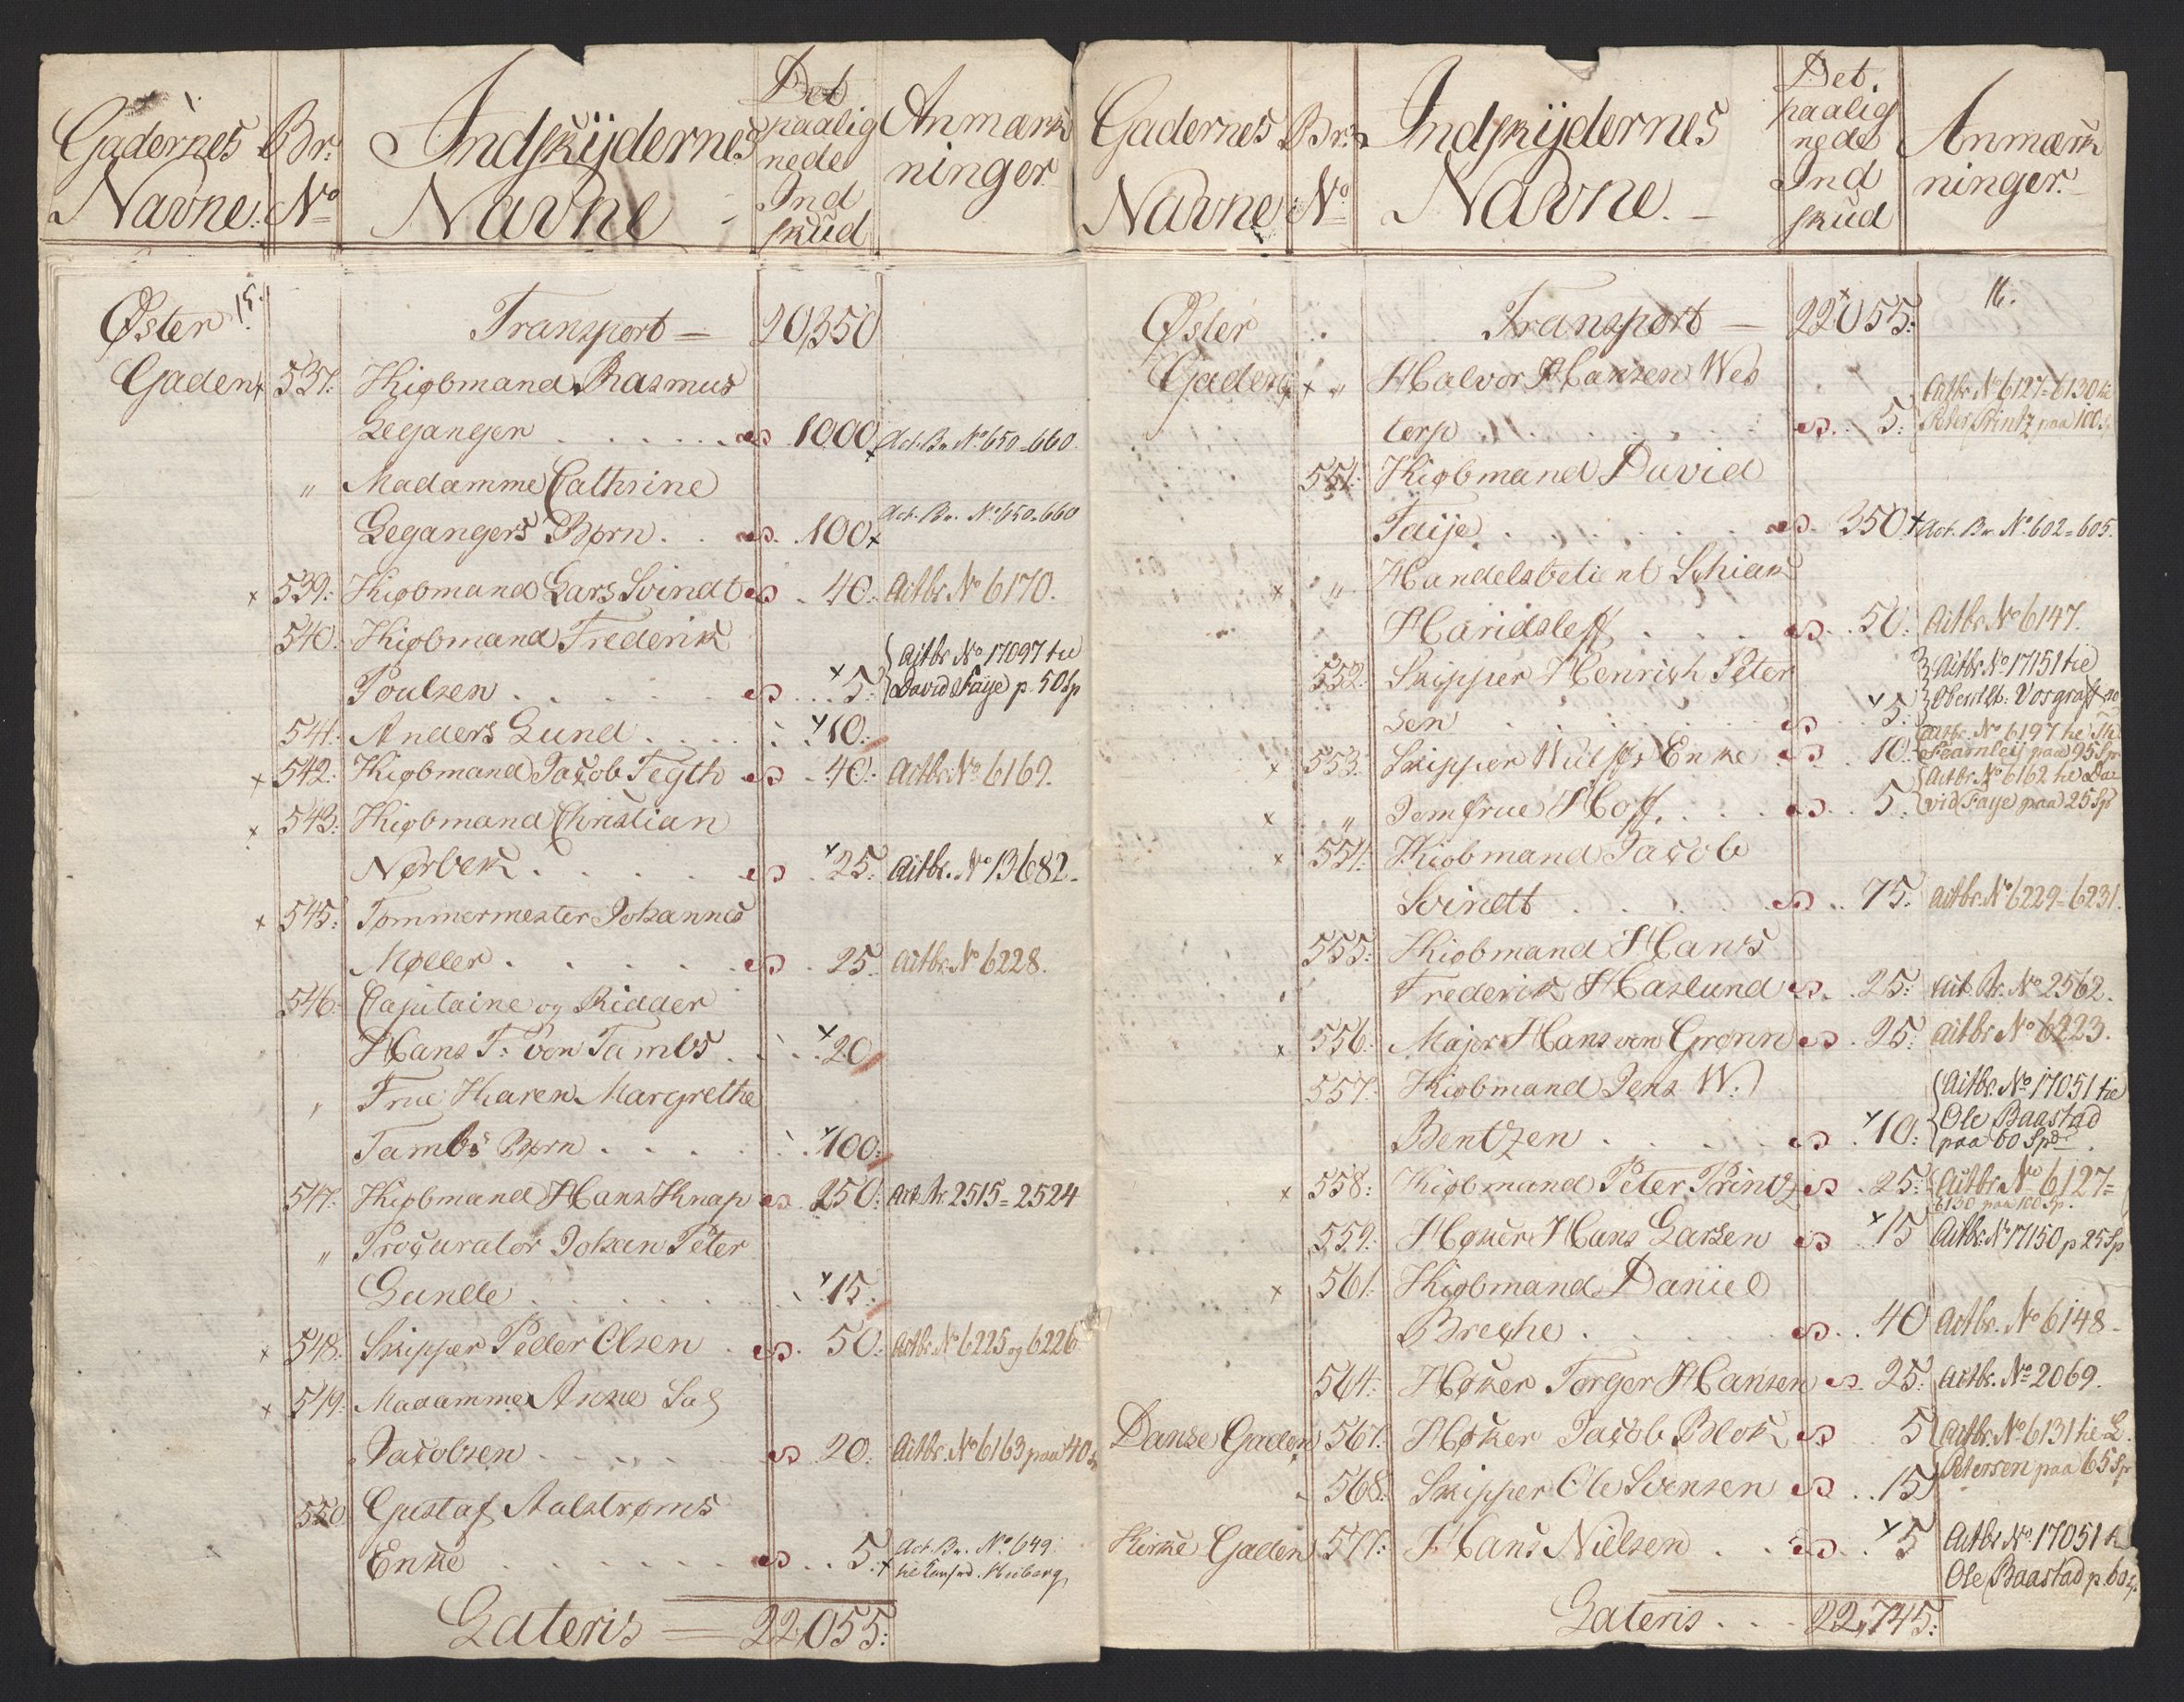 Gadernes Br: Indskijdernes Det Anmærk
Navne: No Navne paalig ninger
nede
Ind
skud
Øster 15. Transport = 20,350
Gaden x 537: Kiøbmand Rasmus
Leganger . . . . . . 1000 x Act. Br. No 650-660
" Madamme Cathrine
Legangers Børn . . 100 x Act. Br. No 650-660
x 539: Kiøbmand Lars Svindt . 40: Actbr. No 6170.
540: Kiøbmand Frederik
Poulsen . . . . x 5: Actbr No 17097 til
David Faye p. 50 Sp
541: Anders Lund . . . . x 10:
x 542: Kiøbmand Jacob Tegth . 40: Actbr No 6169.
x 543: Kiøbmand Christian
Nørbek . . . . x 25: Actbr. No 13682.
x 545: Tømmermester Johannes
Møller . . . . . 25. Actbr. No 6228.
546: Capitaine og Ridder
Hans T: von Tambs . . x 20
" Frue Karen Margrethe
Tambs Børn . . . . x 100:
547: Kiøbmand Hans Knap . 250: Act. Br. 2515=2524
" Procurator Johan Peter
Lunde . . . . . x 15:
x 548: Skipper Peder Olsen . 50: Actbr. No 6225 og 6226
x 549: Madamme Anne Sal
Jacobsen . . . . 20: Actbr. No 6163 paa 40 Sp
550 Gustaf Aalstrøms
Enke . . . . . 5: x Act. Br. No 649.
Lateris = 22,055:
Gadernes Br: Indskijdernes Det Anmærk
Navne No Navne. paalig ninger.
nede
Ind
skud
Øster Transport — 22055: 16.
Gaden x " Halvor Hansen Wes
terp . . . . . 5: Actbr No 6127=6130 til
Peter Printz paa 100 Sp
551: Kiøbmand David
Faije . . . . . 350 x Act. Br. No 602=605.
x " Handelsbetient Schiak
Haridsleff . . . . 50: Actbr No 6147.
552: Skipper Henrich Peter
sen . . . . . x 5: Actbr No 17151 til
Oberstlt. Vosgraff
x 553: Skipper Wulfs Enke . 10: Actbr. No 6197 til Th.
Fearnley paa 95 Sp
x " Jomfrue Hoff . . . 5: Actbr No 6162 til Da
vid Faye paa 25 Sp
x 554: Kiøbmand Jacob
Svindt . . . . . 75: Actbr. No 6229=6231.
555: Kiøbmand Hans
Frederik Haslund . 25: Act. Br. No 2562.
x 556: Major Hans von Grønn . 25: Actbr No 6223.
557: Kiøbmand Jens W.
Bentzen . . . . x 10: Actbr. No 17051 til
Ole Baastad
paa 60 Spd
x 558: Kiøbmand Peter Printz . 25: Actbr No 6127=
6130 paa 100 Sp.
559: Høker Hans Larsen x 15 Actbr. No 17150 p 25 Sp
x 561: Kiøbmand Daniel
Breche . . . . . 40 Actbr. No 6148
564: Høker Torger Hansen . 25: Actbr. No 2069.
Danse Gaden 567: Høker Jacob Blok . 5 Actbr. No 6131 til L.
Petersen paa 65 Sp
568: Skipper Ole Svensen . . 15
Kirke Gaden 577: Hans Nielsen . . x 5 Actbr No 17051 til
Ole Baastad p. 60 Sp.
Lateris . . . 22,745: